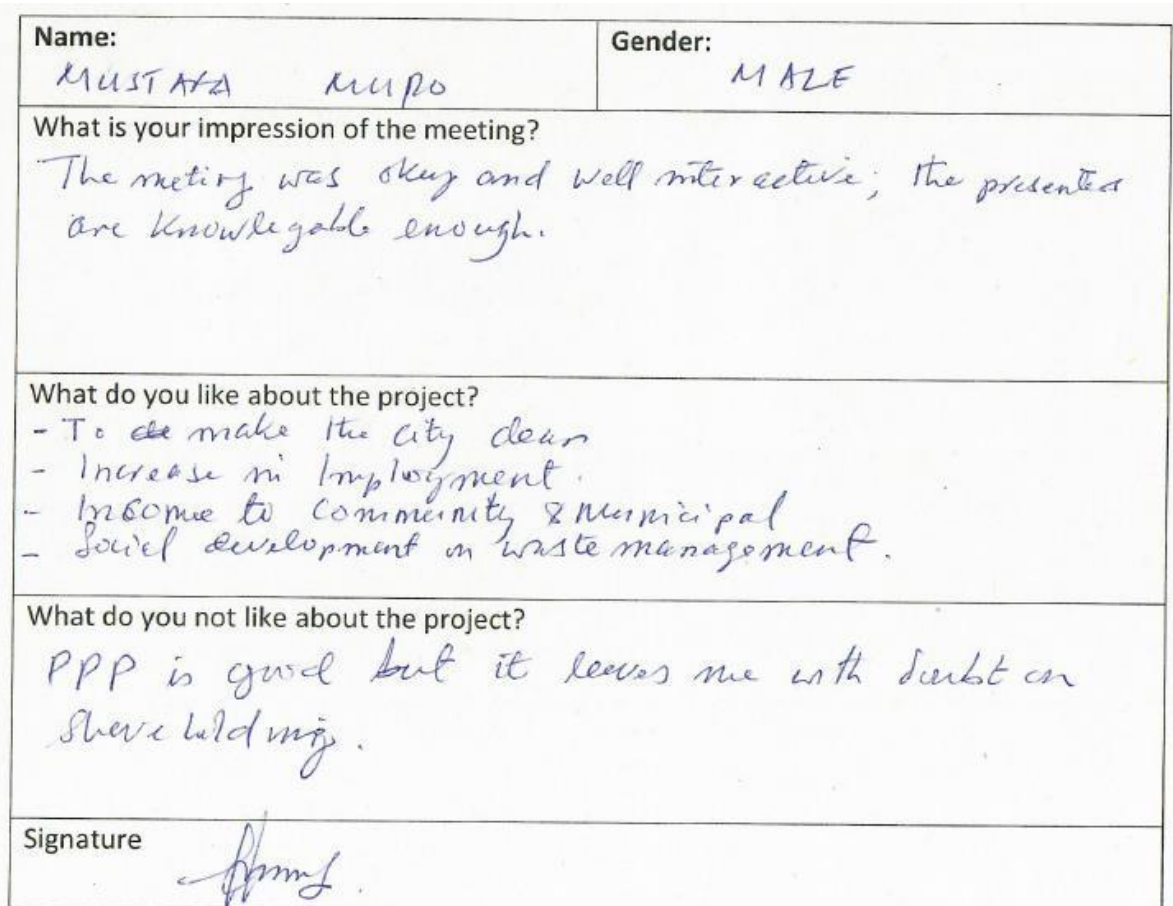 Name:
Gender:
MUSTAFA MURO
MALE
What is your impression of the meeting?
The meting was okay and well interactive; the presenters
are knowlegable enough.
What do you like about the project?
- To make the city clean
- Increase in Imployment.
- Income to Community & Municipal
- Social development on waste management.
What do you not like about the project?
PPP is good but it leaves me with doubt on
shareholding.
Signature